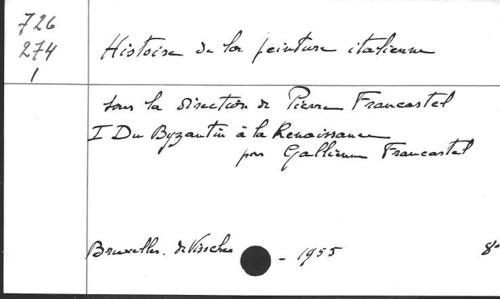 726
274
1
Histoire de la peinture italienne
sous la direction de Pierre Francastel
I Du Byzantin à la Renaissance
par Gallienne Francastel
Bruxelles. de Visscher - 1955 8°